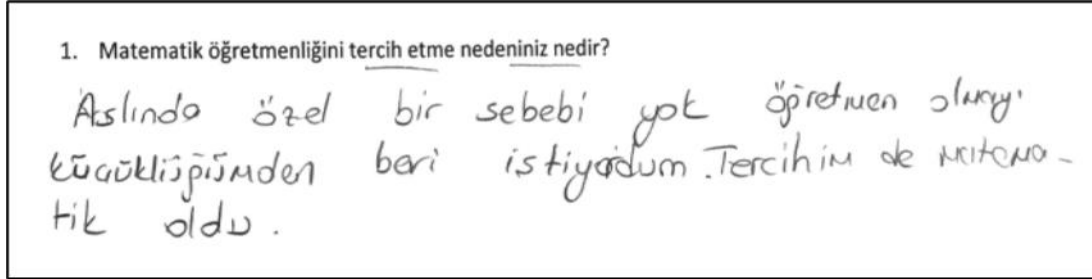 1. Matematik öğretmenliğini tercih etme nedeniniz nedir?
Aslında özel bir sebebi yok öğretmen olmayı
küçüklüğümden beri istiyordum. Tercihim de matema-
tik oldu.